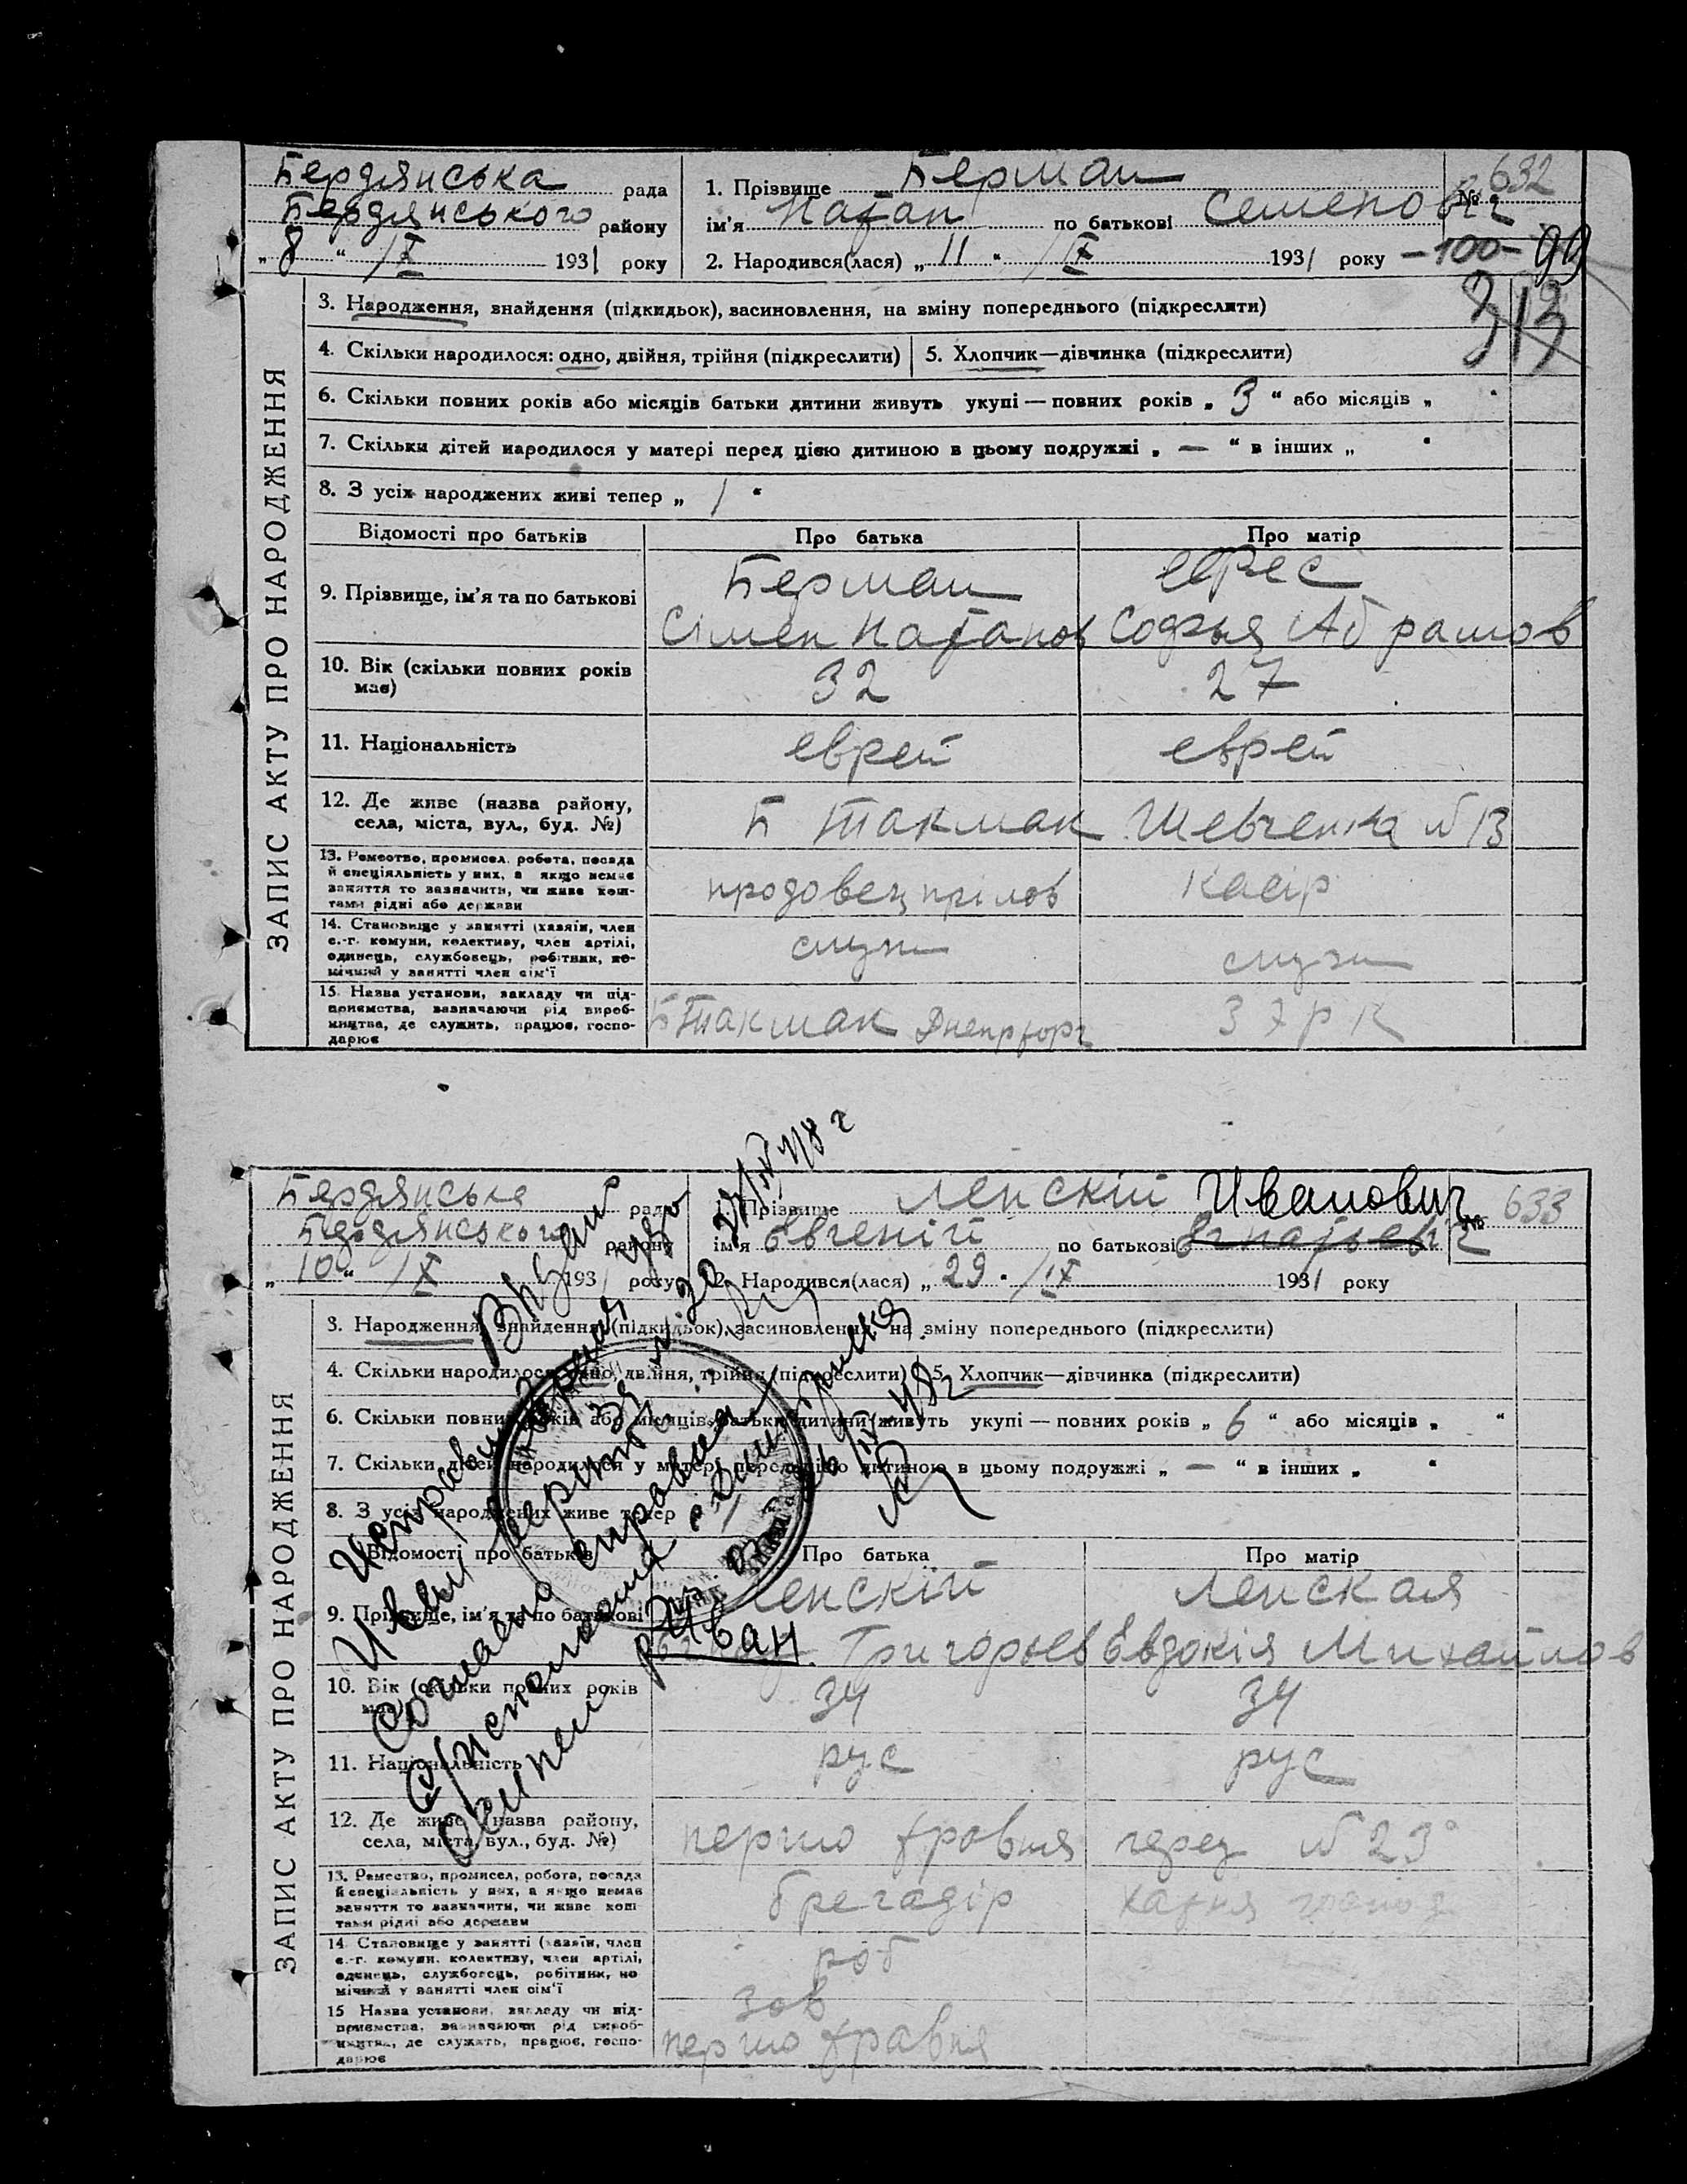 Бердянська рада
Бердянського району
„ 8 “ IX 1931 року
1. Прізвище Берман № 632
ім'я Натан по батькові Семенович
2. Народився(лася) „ 11 “ IX 1931 року -100- 99
313
ЗАПИС АКТУ ПРО НАРОДЖЕННЯ
3. Народження, знайдення (підкидьок), засиновлення, на зміну попереднього (підкреслити)
4. Скільки народилося: одно, двійня, трійня (підкреслити) 5. Хлопчик—дівчинка (підкреслити)
6. Скільки повних років або місяців батьки дитини живуть укупі — повних років „ 3 “ або місяців „ “
7. Скільки дітей народилося у матері перед цією дитиною в цьому подружжі „ — “ в інших „ “
8. З усіх народжених живі тепер „ 1 “
Відомості про батьків Про батька Про матір
9. Прізвище, ім'я та по батькові
Берман
Сімен Натанов Софья Абрамов
10. Вік (скільки повних років має) 32 27
11. Національність еврей еврей
12. Де живе (назва району, села, міста, вул., буд. №)
Б Токмак Шевченка № 13
13. Ремество, промисел, робота, посада
й спеціяльність у них, а якщо немає
заняття то зазначити, чи живе кош-
тами рідні або держави
касір
14. Становище у занятті (хазяїн, член
с.-г. комуни, колективу, член артілі,
одинець, службовець, робітник, по-
мічний у занятті член сім'ї
служ служ
15. Назва установи, закладу чи під-
приємства, зазначаючи рід вироб-
ництва, де служить, працює, госпо-
дарює
Б Токмак Днепрторг ЗТРК
Бердянська рада
Бердянського району
„ 10 “ IX 1931 року
1. Прізвище Ленскій Иванович № 633
ім'я Євгеній по батькові Игнатьевич
2. Народився(лася) „ 29 “ IX 1931 року
ЗАПИС АКТУ ПРО НАРОДЖЕННЯ
3. Народження, знайдення (підкидьок), засиновлення, на зміну попереднього (підкреслити)
4. Скільки народилося: одно, двійня, трійня (підкреслити) 5. Хлопчик—дівчинка (підкреслити)
6. Скільки повних років або місяців батьки дитини живуть укупі — повних років „ 6 “ або місяців „ “
7. Скільки дітей народилося у матері перед цією дитиною в цьому подружжі „ — “ в інших „ “
8. З усіх народжених живе тепер
Відомості про батьків Про батька Про матір
9. Прізвище, ім'я та по батькові
Ленскій Ленская
Иван Григорьев Евдокія Михайлов
10. Вік (скільки повних років має) 34 34
11. Національність рус рус
12. Де живе (назва району, села, міста, вул., буд. №)
першо травня № 23
13. Ремество, промисел, робота, посада
й спеціяльність у них, а якщо немає
заняття то зазначити, чи живе кош-
тами рідні або держави
брегадір хатня
14. Становище у занятті (хазяїн, член
с.-г. комуни, колективу, член артілі,
одинець, службовець, робітник, по-
мічний у занятті член сім'ї
роб
15 Назва установи, закладу чи під-
приємства, зазначаючи рід вироб-
ництва, де служить, працює, госпо-
дарює
зав
першо травня
Исправ
Иван
Согласно справки